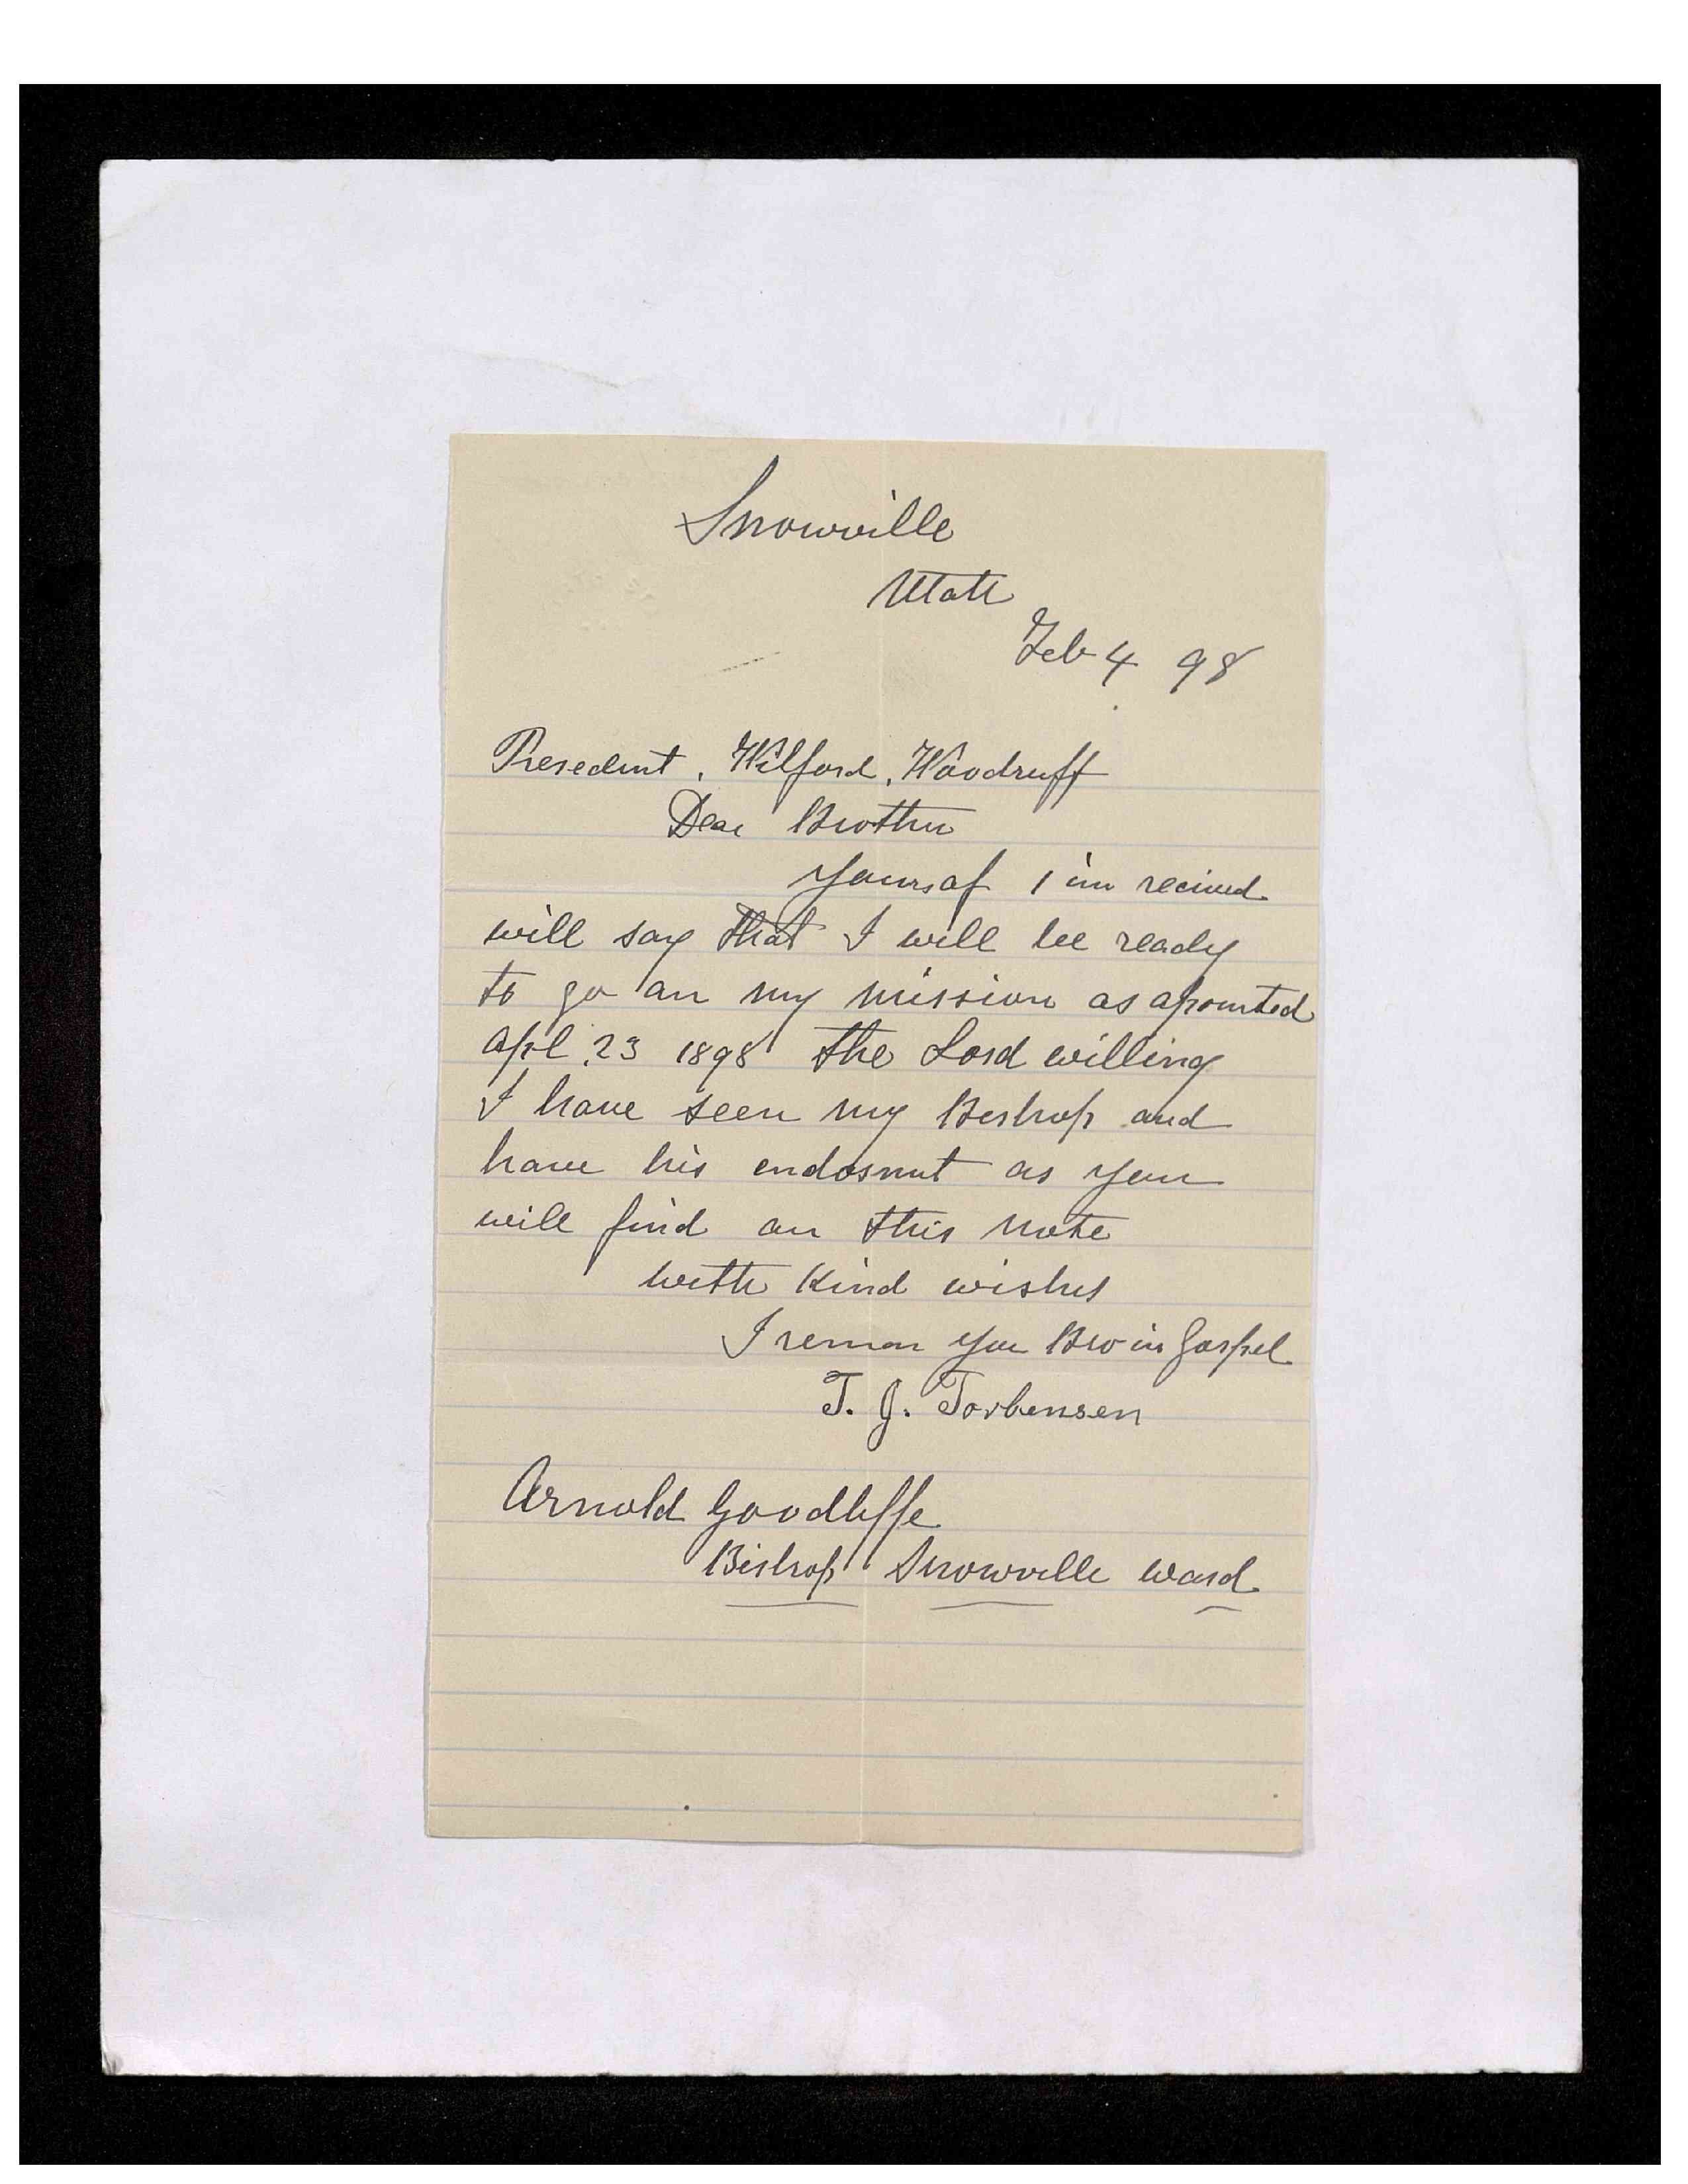 Snowville
Utah
Feb 4 98
Presedent, Wilford, Woodruff
Dear Brother
Yours of 1 in recived
will say that I will be ready
to go on my mission as apointed
Apl 23 1898 the Lord willing
I have seen my Bishop and
have his endosmut as you
will find on this note
with Kind wishes
I reman you Bro in Gospel
T. J. Torbensen
Arnold Goodliffe
Bishop Snowville Ward